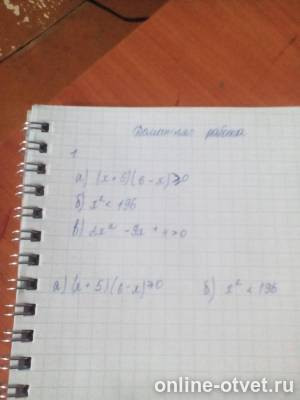 Домашняя работа
1
а) (x+5)(6-x)≥0
б) x² < 196
в) 2x² - 9x + 4 > 0
а) (x+5)(6-x)≥0 б) x² < 196
online-otvet.ru